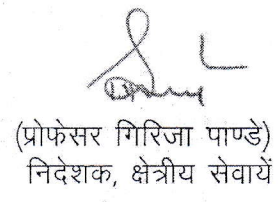 (प्रोफेसर गिरिजा पाण्डे)
निदेशक, क्षेत्रीय सेवायें